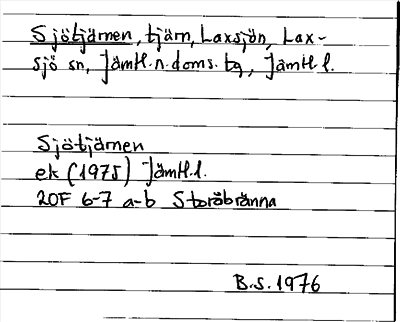 Sjötjärnen, tjärn, Laxsjön, Lax-
sjö sn, Jämtl.n.doms.tg, Jämtl.l.
Sjötjärnen
ek (1975) Jämtl.l.
20F 6-7 a-b Storåbränna
B.S. 1976